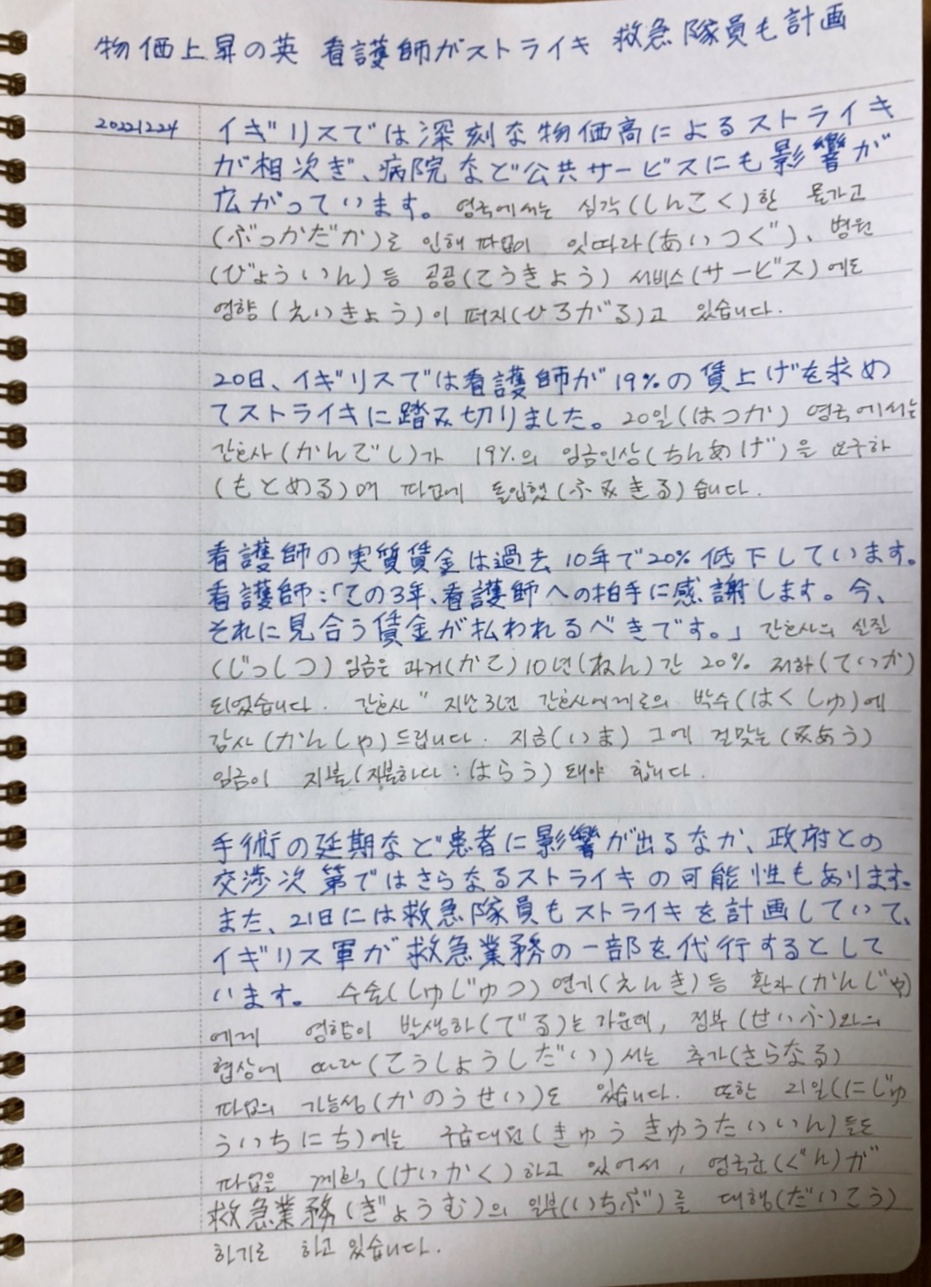 物価上昇の英 看護師がストライキ 救急隊員も計画
20221224 イギリスでは深刻な物価高によるストライキ
が相次ぎ、病院など公共サービスにも影響が
広がっています。영국에서는 심각(しんこく)한 물가고
(ぶっかだか)로 인해 파업이 잇따라(あいつぐ)、병원
(びょういん)등 공공(こうきょう) 서비스(サービス)에도
영향(えいきょう)이 퍼지(ひろがる)고 있습니다.
20日、イギリスでは看護師が19%の賃上げを求め
てストライキに踏み切りました。20일(はつか) 영국에서는
간호사(かんごし)가 19%의 임금인상(ちんあげ)을 요구하
(もとめる)며 파업에 돌입했(ふみきる)습니다.
看護師の実質賃金は過去10年で20%低下しています。
看護師:「この3年、看護師への拍手に感謝します。今、
それに見合う賃金が払われるべきです。」간호사의 실질
(じっしつ) 임금은 과거(かこ)10년(ねん)간 20% 저하(ていか)
되었습니다. 간호사" 지난3년 간호사에게로의 박수(はくしゅ)에
감사(かんしゃ)드립니다. 지금(いま) 그에 걸맞는(みあう)
임금이 지불(지불하다:はらう)돼야 합니다.
手術の延期など患者に影響が出るなか、政府との
交渉次第ではさらなるストライキの可能性もあります。
また、21日には救急隊員もストライキを計画していて、
イギリス軍が救急業務の一部を代行するとして
います。수술(しゅじゅつ)연기(えんき)등 환자(かんじゃ)
에게 영향이 발생하(でる)는 가운데, 정부(せいふ)와의
협상에 따라(こうしょうしだい)서는 추가(さらなる)
파업의 가능성(かのうせい)도 있습니다. 또한 21일(にじゅ
ういちにち)에는 구급대원(きゅうきゅうたいいん)들도
파업을 계획(けいかく)하고 있어서, 영국군(ぐん)が
救急業務(ぎょうむ)의 일부(いちぶ)를 대행(だいこう)
하기로 하고 있습니다.